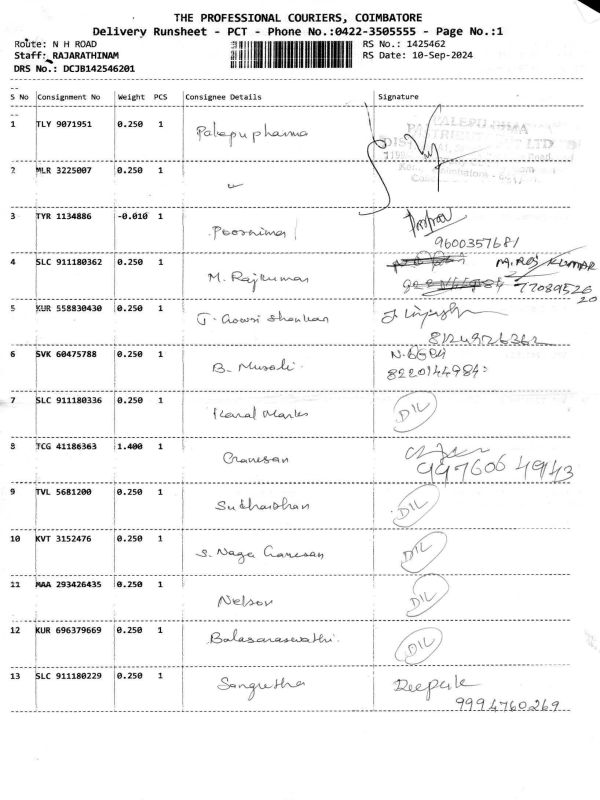 THE PROFESSIONAL COURIERS, COIMBATORE
Delivery Runsheet - PCT - Phone No.:0422-3505555 - Page No.:1
Route: N H ROAD
RS No.: 1425462
Staff: RAJARATHINAM
RS Date: 10-Sep-2024
DRS No.: DCJB142546201
S No Consignment No Weight PCS Consignee Details Signature
1 TLY 9071951 0.250 1 Palepu pharma
2 MLR 3225007 0.250 1 "
3 TYR 1134886 -0.010 1 Poornima
9600357681
4 SLC 911180362 0.250 1 M. Rajkumar M. RAJ KUMAR
7708952620
5 KUR 558830430 0.250 1 T. Gowri Shankar
6 SVK 60475788 0.250 1 B. Murali
8220144984
7 SLC 911180336 0.250 1 Karal Marks DIL
8 TCG 41186363 1.400 1 Ganesan
9 TVL 5681200 0.250 1 Sudharshan DIL
10 KVT 3152476 0.250 1 S. Naga Ganesan DIL
11 MAA 293426435 0.250 1 Nelson DIL
12 KUR 696379669 0.250 1 Balasaraswathi. DIL
13 SLC 911180229 0.250 1 Sangeetha Deepak
9994760269